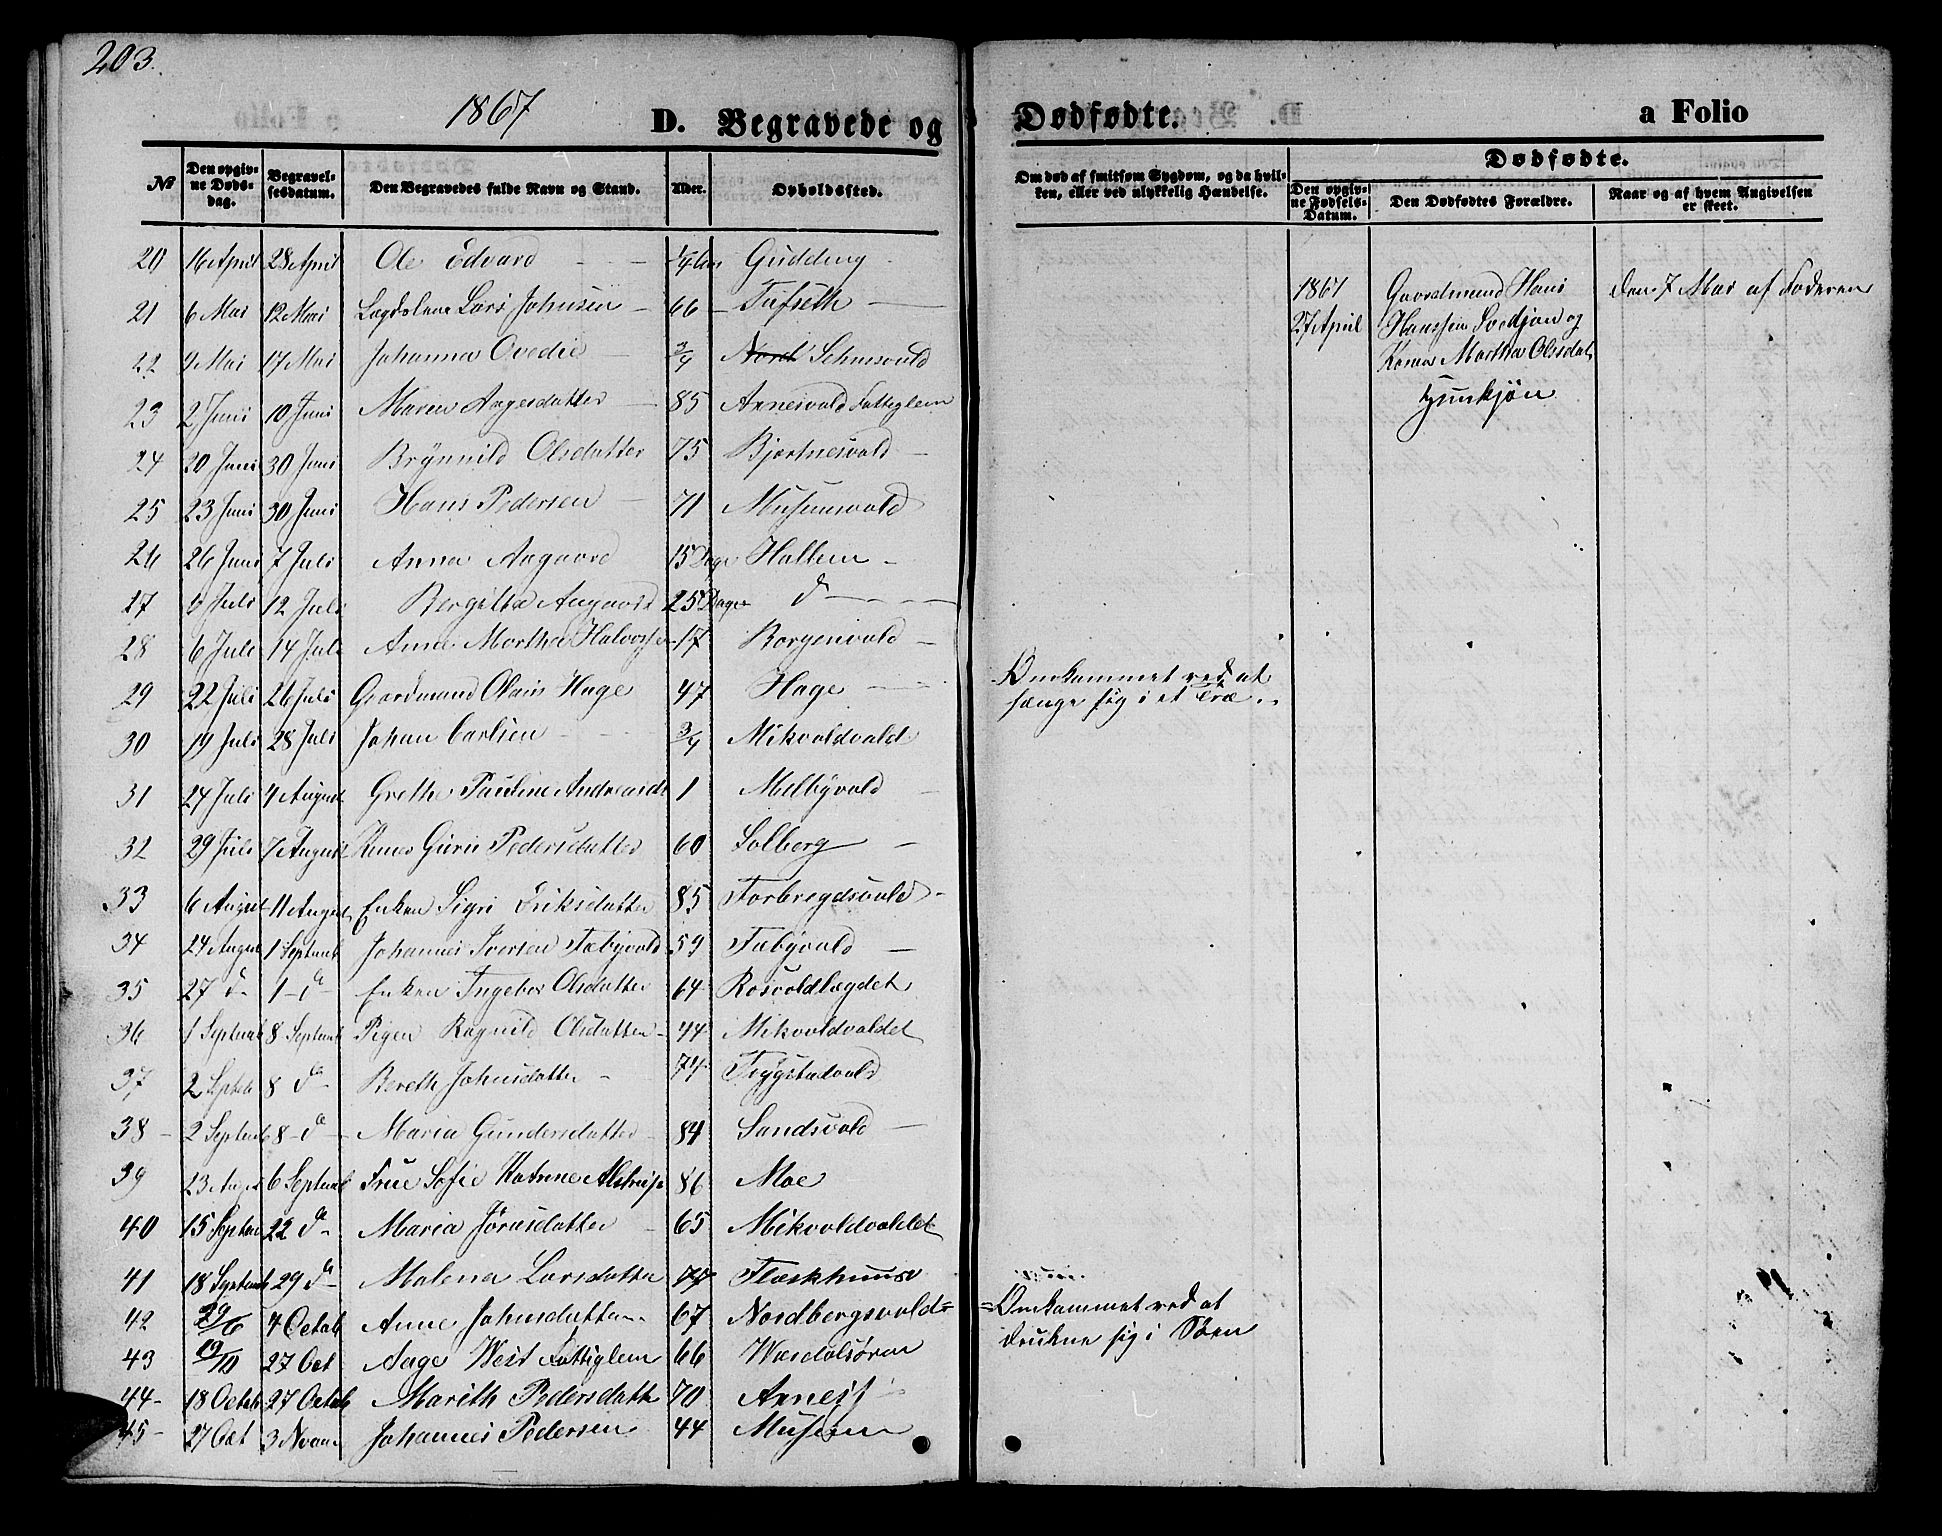 203.
1867 D. Begravede og Dødfødte. a Folio
No
Den opgivne Dødsdag.
Begravelsesdatum.
Den Begravedes fulde Navn og Stand.
Alder.
Opholdssted.
Om død af smitsom Sygdom, og da hvilken, eller ved ulykkelig Hændelse.
Dødfødte.
Den opgivne Fødsels-Datum.
Den Dødfødtes Forældre.
Naar og af hvem Angivelsen er skeet.
20 16 April 28 April Ole Edvard 1/4 Gudding
21 6 Mai 12 Mai Lars Johnsen 66 Tufseth
22 9 Mai 17 Mai Johanna Ovedie 3/4
23 2 Juni 10 Juni Maren Aagesdatter 85 Arnesvald Fattiglem
24 20 Juni 30 Juni Brynnild Olsdatter 75 Bjartnesvald
25 23 Juni 30 Juni Hans Pedersen 71 Musumvald
26 26 Juni 7 Juli Anna Aagaard 15 Dage Hallem
27 6 Juli 12 Juli Bergitta Aagaard 25 Dage do
28 6 Juli 14 Juli Anne Martha Halvorsen 17 Borgenvald
29 22 Juli 26 Juli Gaardmand Olaus Hage 47 Hage Omkommet ved at
hænge sig i et Træ.
30 19 Juli 28 Juli Johan Carlsen 3/4 Mikvoldvald
31 24 Juli 4 August Grethe Pauline Andreasdt 1 Melbyvald
32 29 Juli 7 August Konen Guru Pedersdatter 60 Solberg
33 6 August 11 August Enken Sigri Eriksdatter 85 Forbregdsvald
34 24 August 1 Septemb Johannes Iversen Fæbyvald 59 Fæbyvald
35 27 d 1 da Enken Ingebor Olsdatter 64 Rosvoldlægdet
36 1 Septemb 8 Septemb Pigen Ragnild Olsdatter 44 Mikvoldvaldet
37 2 Septeb 8 da Bereth Johnsdatter 74
38 2 Septemb 8 d Maria Gundersdatter 84 Sandsvald
39 23 August 6 Septemb Frue Sofie Katrine Alstrup 86 Moe
40 15 Septeb 22 da Maria Jørnsdatter 65 Mikvoldvaldet
41 18 Septemb 29 da Malena Larsdatter 77 Fleskhuus
42 29/6 4 Octob Anne Johnsdatter 67 Nordbergsvald = = Omkommet ved at
drukne sig i Søen
43 19/10 27 Oct Aage West Fattiglem 66 Værdalsøren
44 18 Octob 27 Octob Marith Pedersdatte 70
45 27 Oct 3 Novem Johannes Pedersen 44 Musum
1867
27 April
Gaardmand Hans
Hanssen Svedjan og
Kone Martha Olsdat
den 7 Mai af Faderen